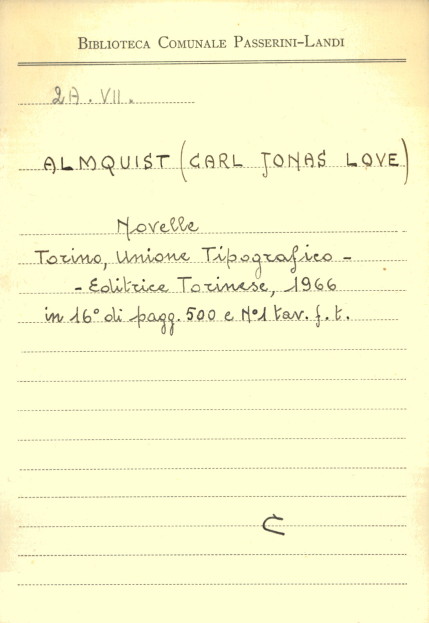 BIBLIOTECA COMUNALE PASSERINI-LANDI
2A.VII.
ALMQUIST (CARL JONAS LOVE)
Novelle
Torino, Unione Tipografico -
- Editrice Torinese, 1966
in 16° di pagg. 500 e N°1 tav. f. t.
C